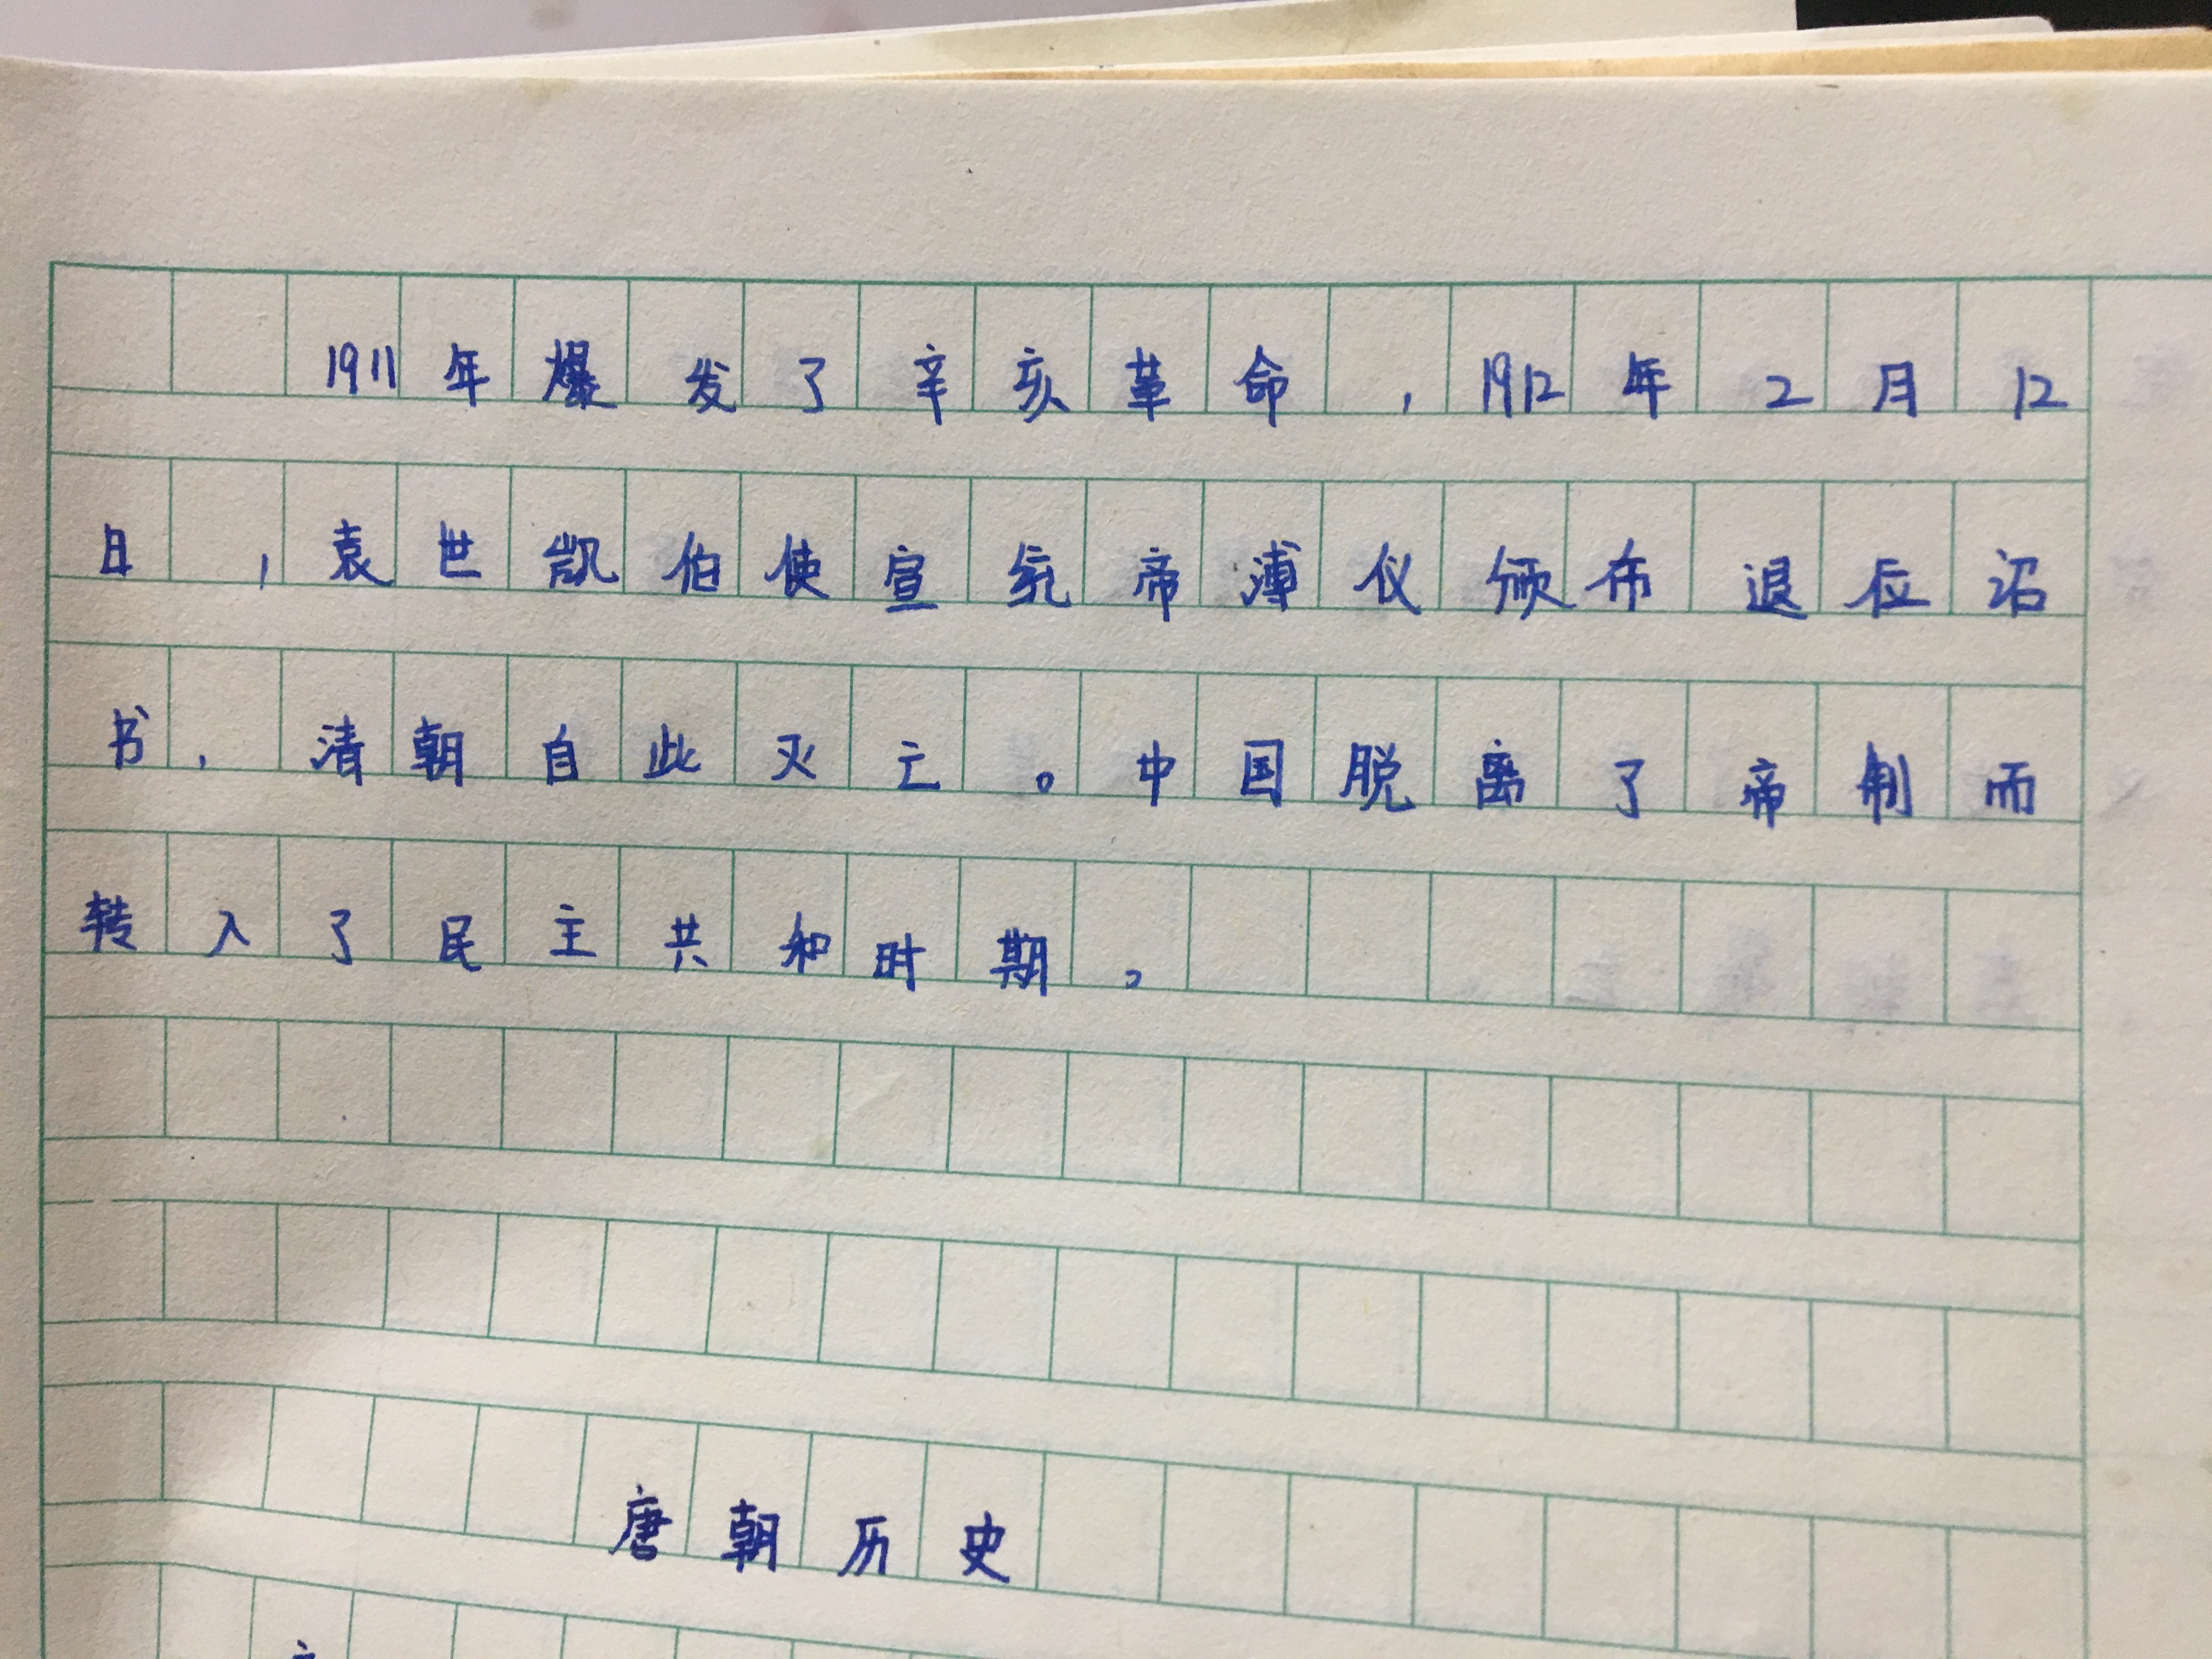 1911年爆发了辛亥革命,1912年2月12
日,袁世凯伯使宣统帝溥仪颁布退位诏
书,清朝自此灭亡。中国脱离了帝制而
转入了民主共和时期。
唐朝历史